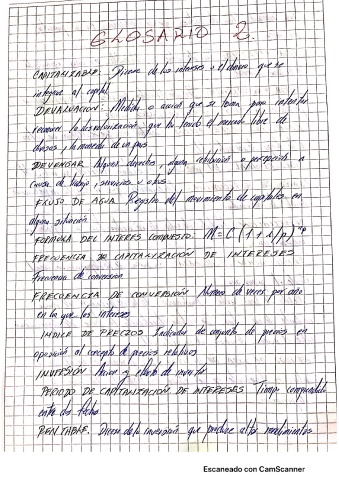 GLOSARIO 2.
CAPITALIZABLE: Dicese de los intereses o el dinero que se
integran al capital
DEVALUACION: Medida o accion que se toma para intentar
reconocer la desvalorización que ha tenido el mercado libre de
divisas, la moneda de un pais
DEVENGAR Algun derecho, alguna retribucion o percepción a
causa de trabajo, servicios u otros
FLUJO DE Registro del movimiento de capitales en
alguna situación
FORMULA DEL INTERES COMPUESTO: M=C(1+i/p)^np
FRECUENCIA DE CAPITALIZACIÓN DE INTERESES
Frecuencia de conversion
FRECUENCIA DE CONVERSIÓN Numero de veces por año
en la que los intereses
INDICE DE PRECIOS Indicador de conjunto de precios en
oposición al concepto de precios relativos
INVERSIÓN Accion y efecto de invertir
PERIODO DE CAPITALIZACIÓN DE INTERESES Tiempo comprendido
entre dos fechas
RENTABLE. Dicese de la inversión que produce altos rendimientos
Escaneado con CamScanner